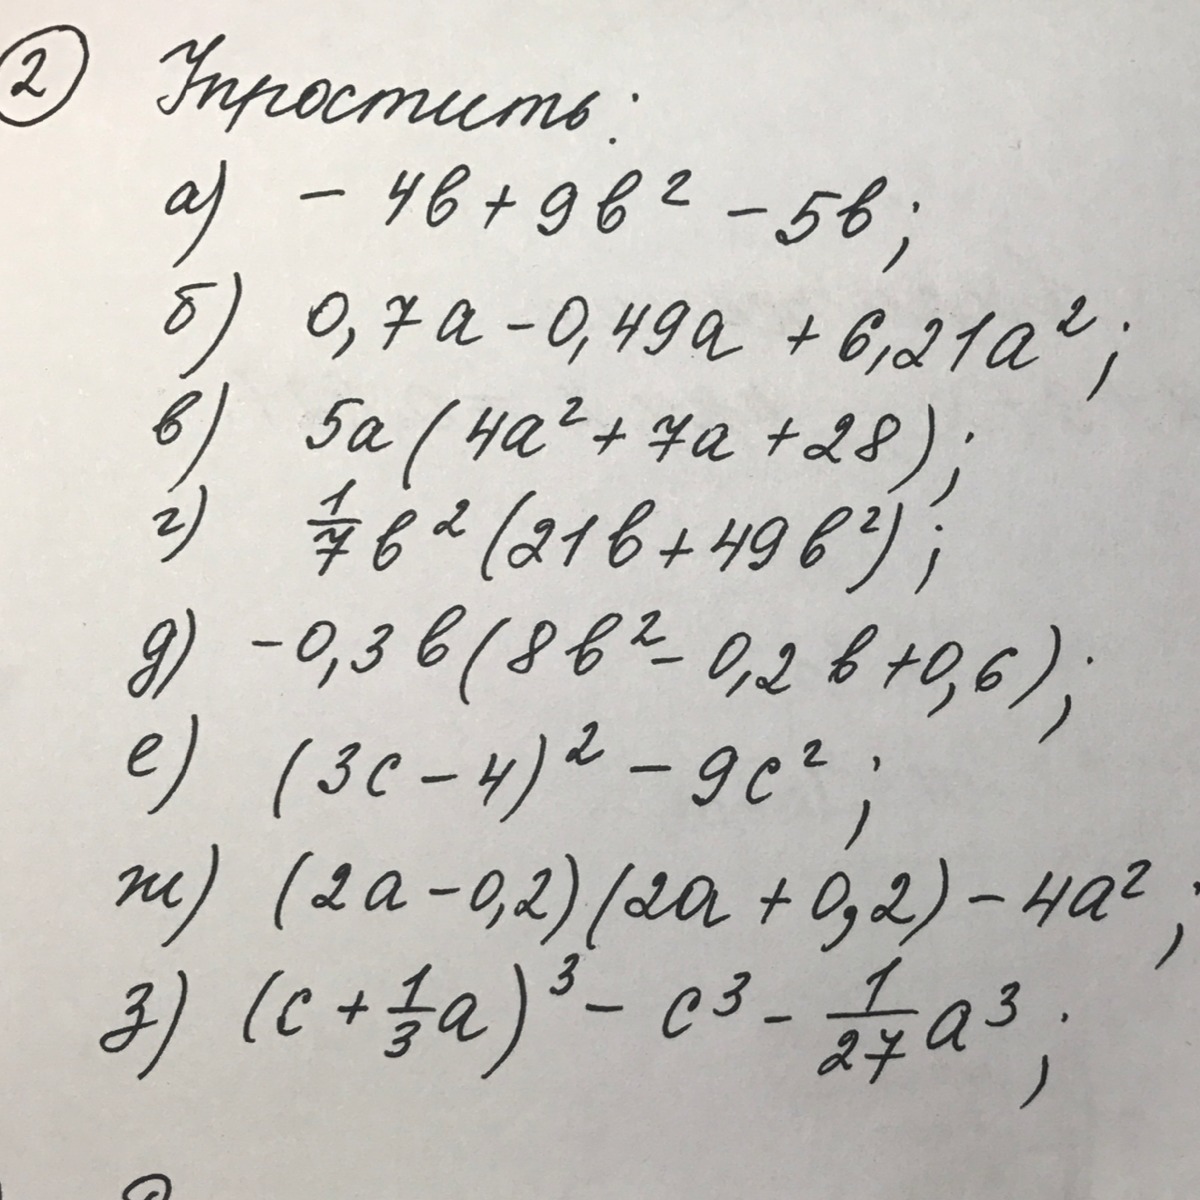 2 Упростить:
а) - 4в + 9в² - 5в;
б) 0,7а - 0,49а + 6,21а²;
в) 5а(4а² + 7а + 28);
г) 1/7 в²(21в + 49в²);
д) -0,3в(8в² - 0,2в + 0,6);
е) (3с - 4)² - 9с²;
ж) (2а - 0,2)(2а + 0,2) - 4а²;
з) (с + 1/3 а)³ - с³ - 1/27 а³;